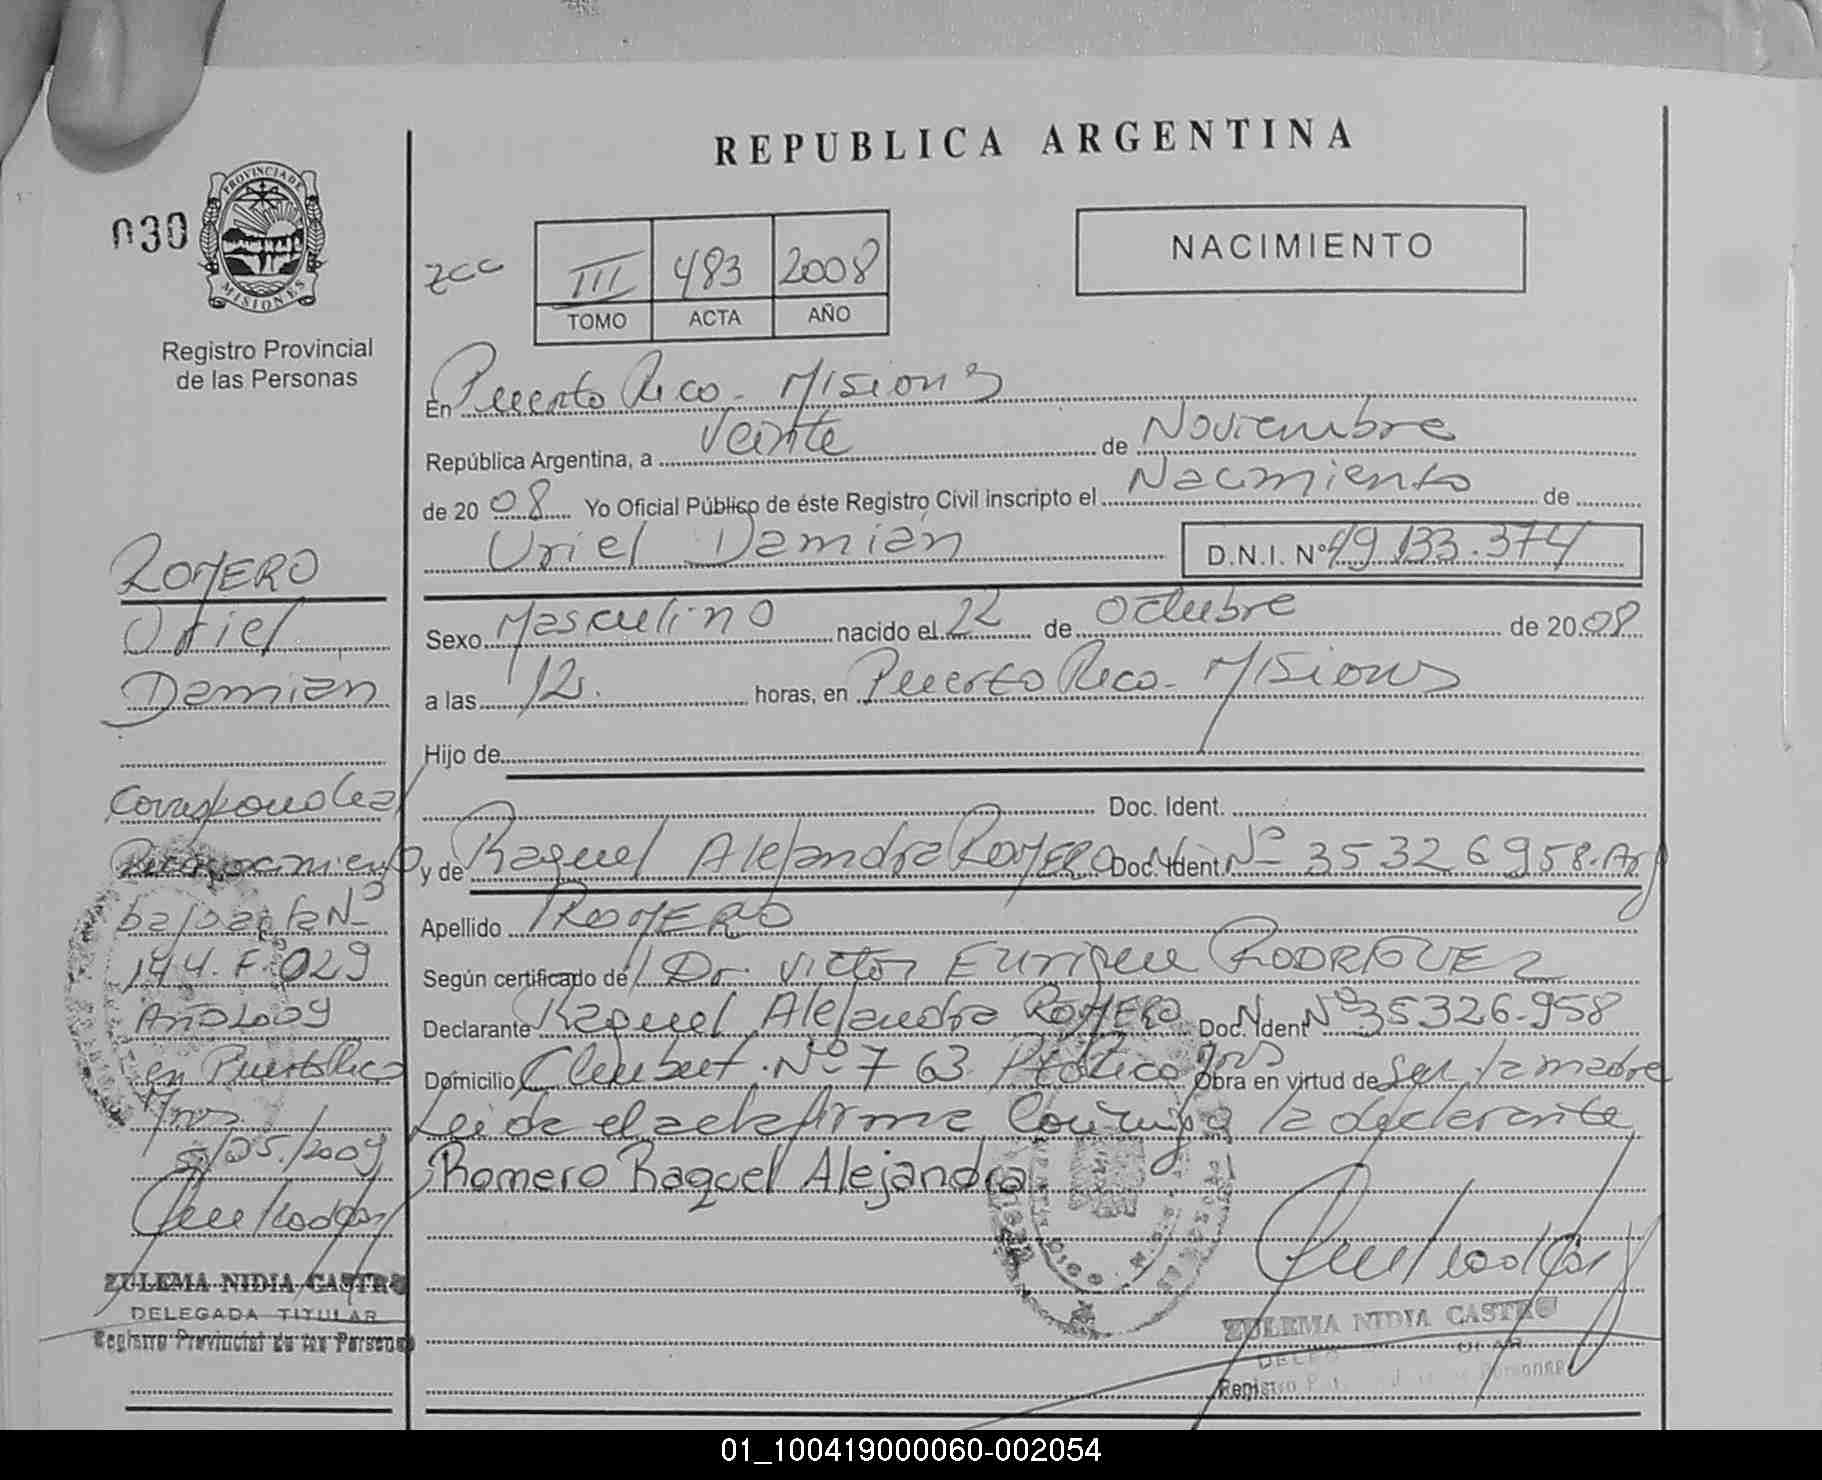 REPUBLICA ARGENTINA
030
PROVINCIA DE
MISIONES
Registro Provincial
de las Personas
zcc
III 483 2008
TOMO ACTA AÑO
NACIMIENTO
En Puerto Rico - Misiones
República Argentina, a Veinte de Noviembre
de 2008 Yo Oficial Público de éste Registro Civil inscripto el Nacimiento de
Uriel Damián D.N.I. Nº 49.133.374
Sexo Masculino nacido el 22 de Octubre de 2008
a las 12. horas, en Puerto Rico - Misiones
Hijo de
Doc. Ident.
y de Raquel Alejandra ROMERO Doc. Ident. Nº 35326958. Arg
Apellido ROMERO
Según certificado de Dr. Victor Enrique RODRIGUEZ
Declarante Raquel Alejandra ROMERO Doc. Ident Nº 35326.958
Domicilio Nº 763 Obra en virtud de ser la madre
Leida el acta firma conmigo la declarante
Romero Raquel Alejandra
ZULEMA NIDIA CASTRO
ROMERO
Uriel
Damián
Corresponde al
Reconocimiento
bajo acta Nº
144. F. 029
Año 2009
en Puerto Rico
Mnes
5/05/2009
ZULEMA NIDIA CASTRO
DELEGADA TITULAR
Registro Provincial de las Personas
01_100419000060-002054